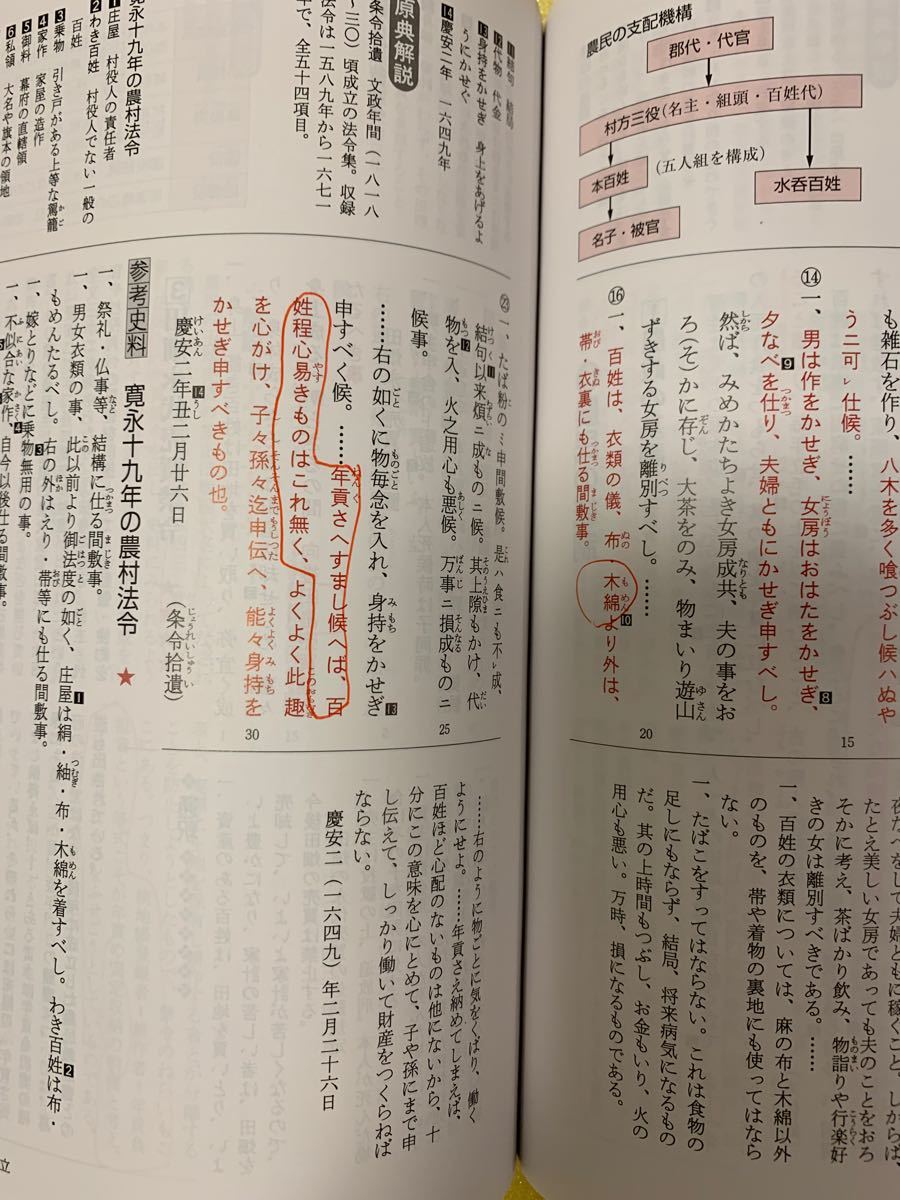 農民の支配機構
郡代・代官
村方三役(名主・組頭・百姓代)
(五人組を構成)
本百姓
水呑百姓
名子・被官
も雑石を作り、八木を多く喰つぶし候ハぬや
うニ可レ仕候。……
⑭一、男は作をかせぎ、女房はおはたをかせぎ、
夕なべを仕り、夫婦ともにかせぎ申すべし。
然ば、みめかたちよき女房成共、夫の事をお
ろ(そ)かに存じ、大茶をのみ、物まいり遊山
ずきする女房を離別すべし。……
⑯一、百姓は、衣類の儀、布木綿より外は、
帯・衣裏にも仕る間敷事。
㉓一、たば粉のミ申間敷候。是ハ食ニも不レ成、
結句以来煩ニ成ものニ候。其上隙もかけ、代
物を入、火之用心も悪候。万事ニ損成ものニ
候事。
……右の如くに物毎念を入れ、身持をかせぎ
申すべく候。……年貢さへすまし候へば、百
姓程心易きものはこれ無く、よくよく此趣
を心がけ、子々孫々迄申伝へ、能々身持を
かせぎ申すべきもの也。
慶安二年丑二月廿六日
(条令拾遺)
15
20
25
30
夜なべをして夫婦ともに稼ぐこと。しからば、
たとえ美しい女房であっても夫のことをおろ
そかに考え、茶ばかり飲み、物詣りや行楽好
きの女は離別すべきである。……
一、百姓の衣類については、麻の布と木綿以外
のものを、帯や着物の裏地にも使ってはなら
ない。
一、たばこをすってはならない。これは食物の
足しにもならず、結局、将来病気になるもの
だ。其の上時間もつぶし、お金もいり、火の
用心も悪い。万時、損になるものである。
……右のように物ごとに気をくばり、働く
ようにせよ。……年貢さえ納めてしまえば、
百姓ほど心配のないものは他にないから、十
分にこの意味を心にとめて、子や孫にまで申
し伝えて、しっかり働いて財産をつくらねば
ならない。
慶安二(一六四九)年二月二十六日
11結句 結局
12代物 代金
13身持をかせぎ 身上をあげるよ
うにかせぐ
14慶安二年 一六四九年
原典解説
条令拾遺 文政年間(一八一八
〜三〇)頃成立の法令集。収録
法令は一五八九年から一六七一
年で、全五十四項目。
寛永十九年の農村法令
1庄屋 村役人の責任者
2わき百姓 村役人でない一般の
百姓
3乗物 引き戸がある上等な駕籠
4家作 家屋の造作
5御料 幕府の直轄領
6私領 大名や旗本の領地
参考史料 寛永十九年の農村法令 ★
一、祭礼・仏事等、結構に仕る間敷事。
一、男女衣類の事、此以前より御法度の如く、庄屋は絹・紬・布・木綿を着すべし。わき百姓は布・
もめんたるべし。右の外はえり・帯等にも仕る間敷事。
一、嫁とりなどに乗物無用の事。
一、不似合な家作、自今以後仕る間敷事。
立